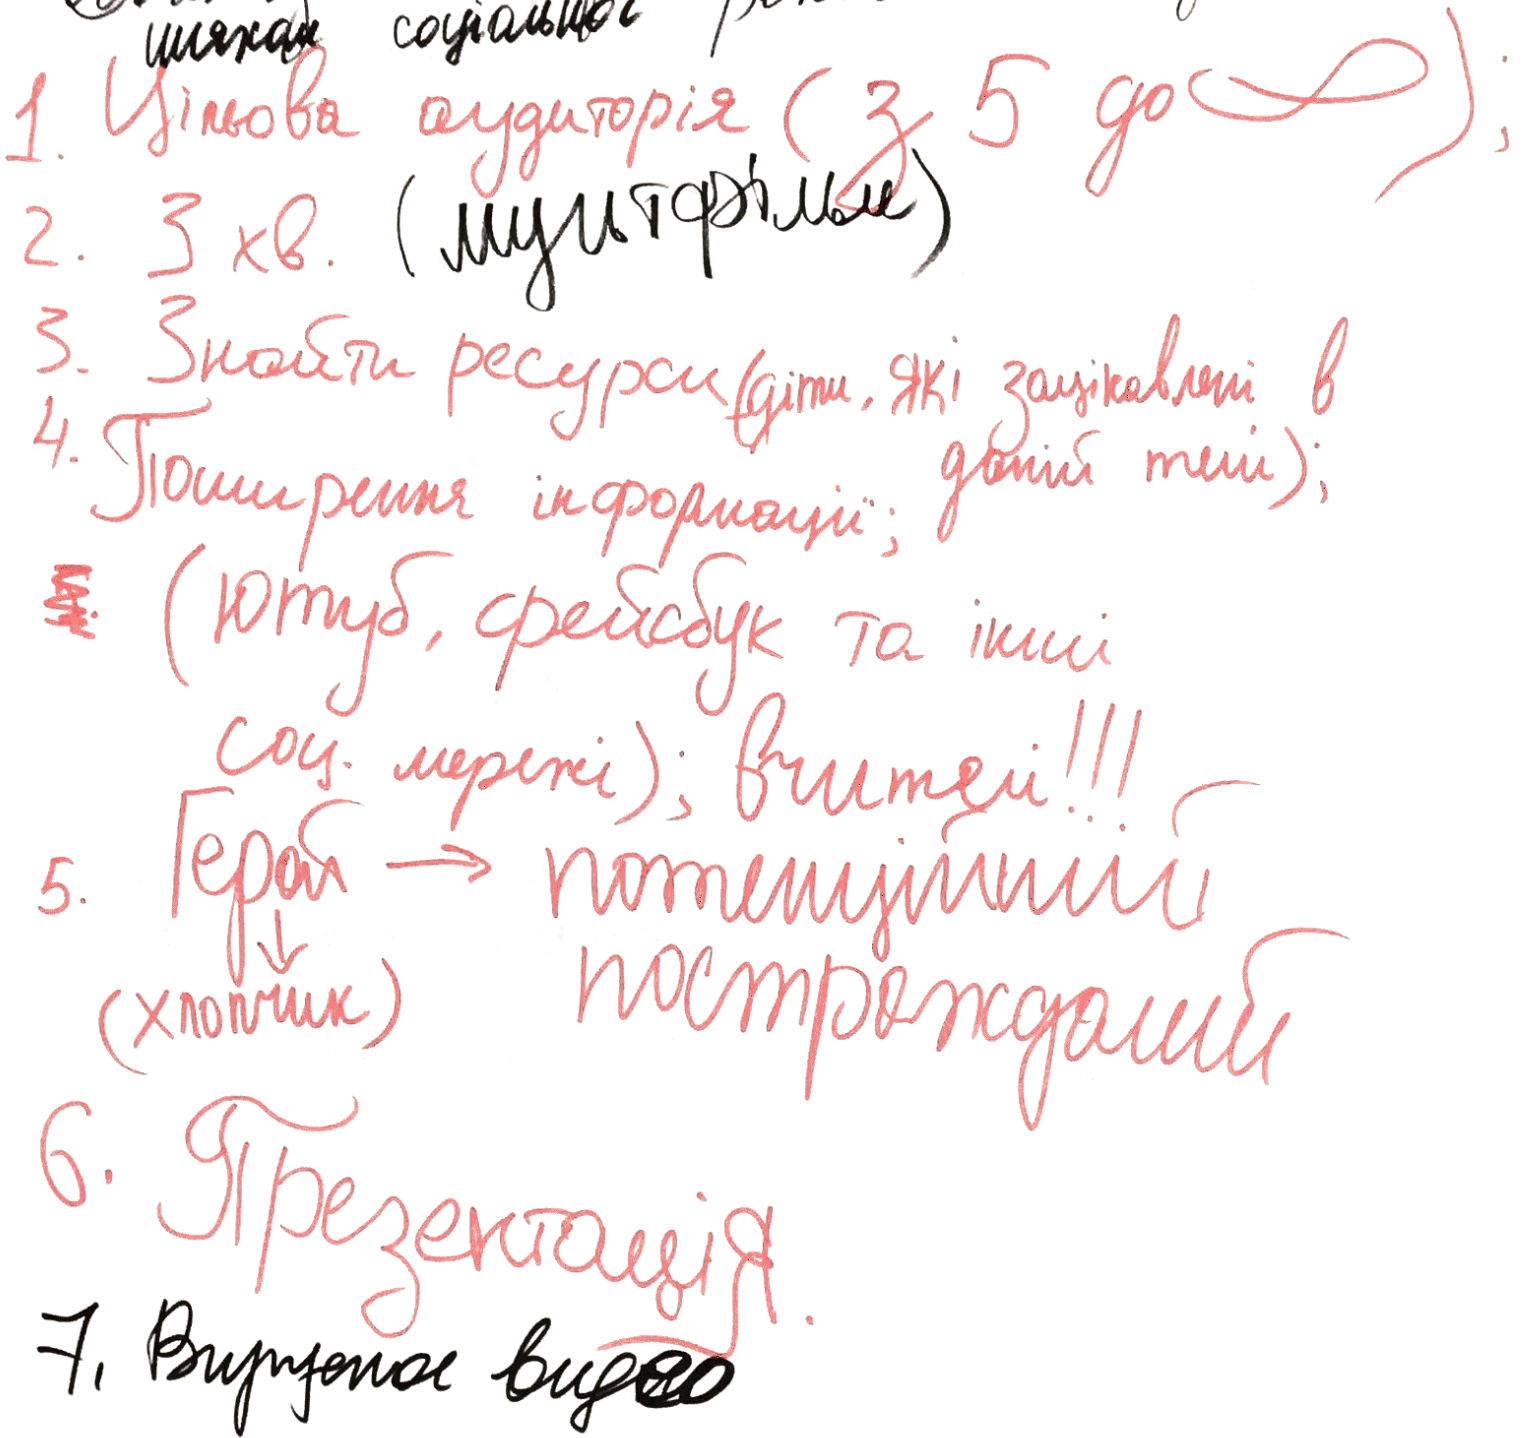 шляхам соціальної
1. Цільова аудиторія (з 5 до ∞);
2. 3 хв. (мультфільм)
3. Знайти ресурси (діти, які зацікавлені в
даній темі);
4. Поширення інформації;
(Ютуб, фейсбук та інші
соц. мережі); вчителі!!!
5. Герой → потенційний
постраждалий
↓
(хлопчик)
6. Презентація.
7. Вирізопа видео